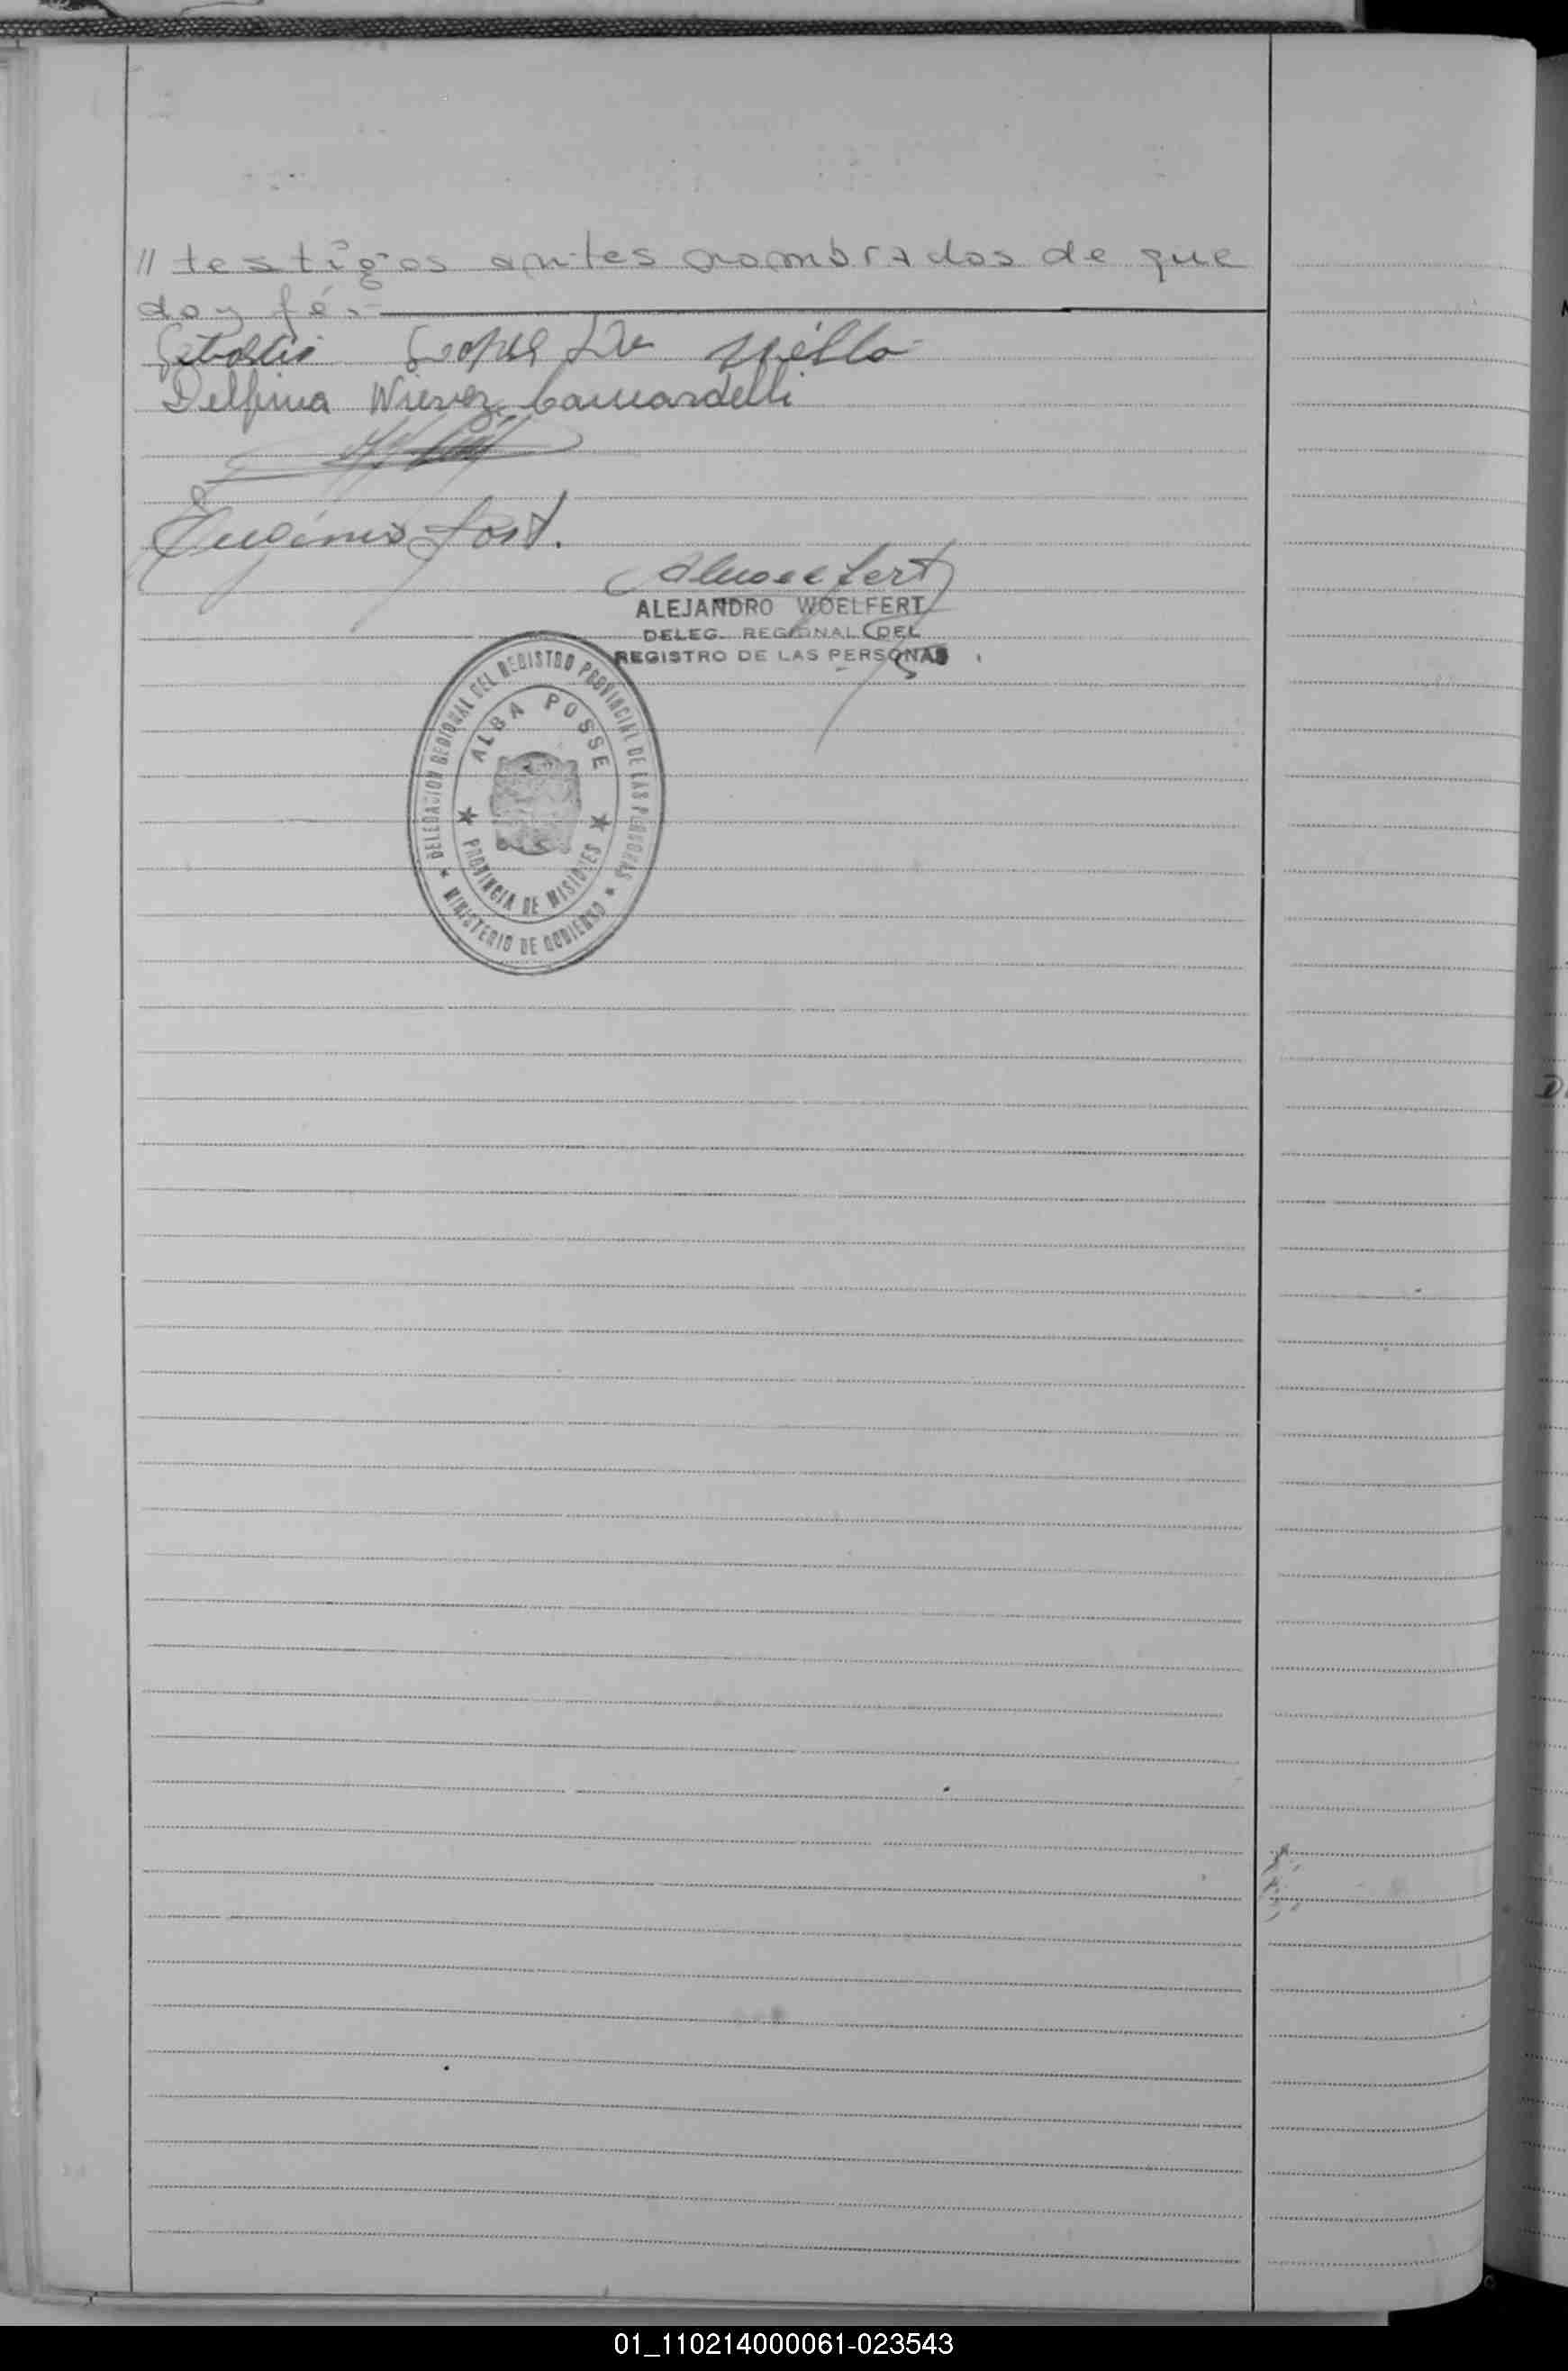 // testigos antes nombrados de que
doy fé.-
Lopes De Mello
Delfina Nievez Camardelli
Eugenio Jost.
ALEJANDRO WOELFERT
DELEG. REGIONAL DEL
REGISTRO DE LAS PERSONAS
DELEGACION REGIONAL DEL REGISTRO PROVINCIAL DE LAS PERSONAS
ALBA POSSE
PROVINCIA DE MISIONES
MINISTERIO DE GOBIERNO
01_110214000061-023543